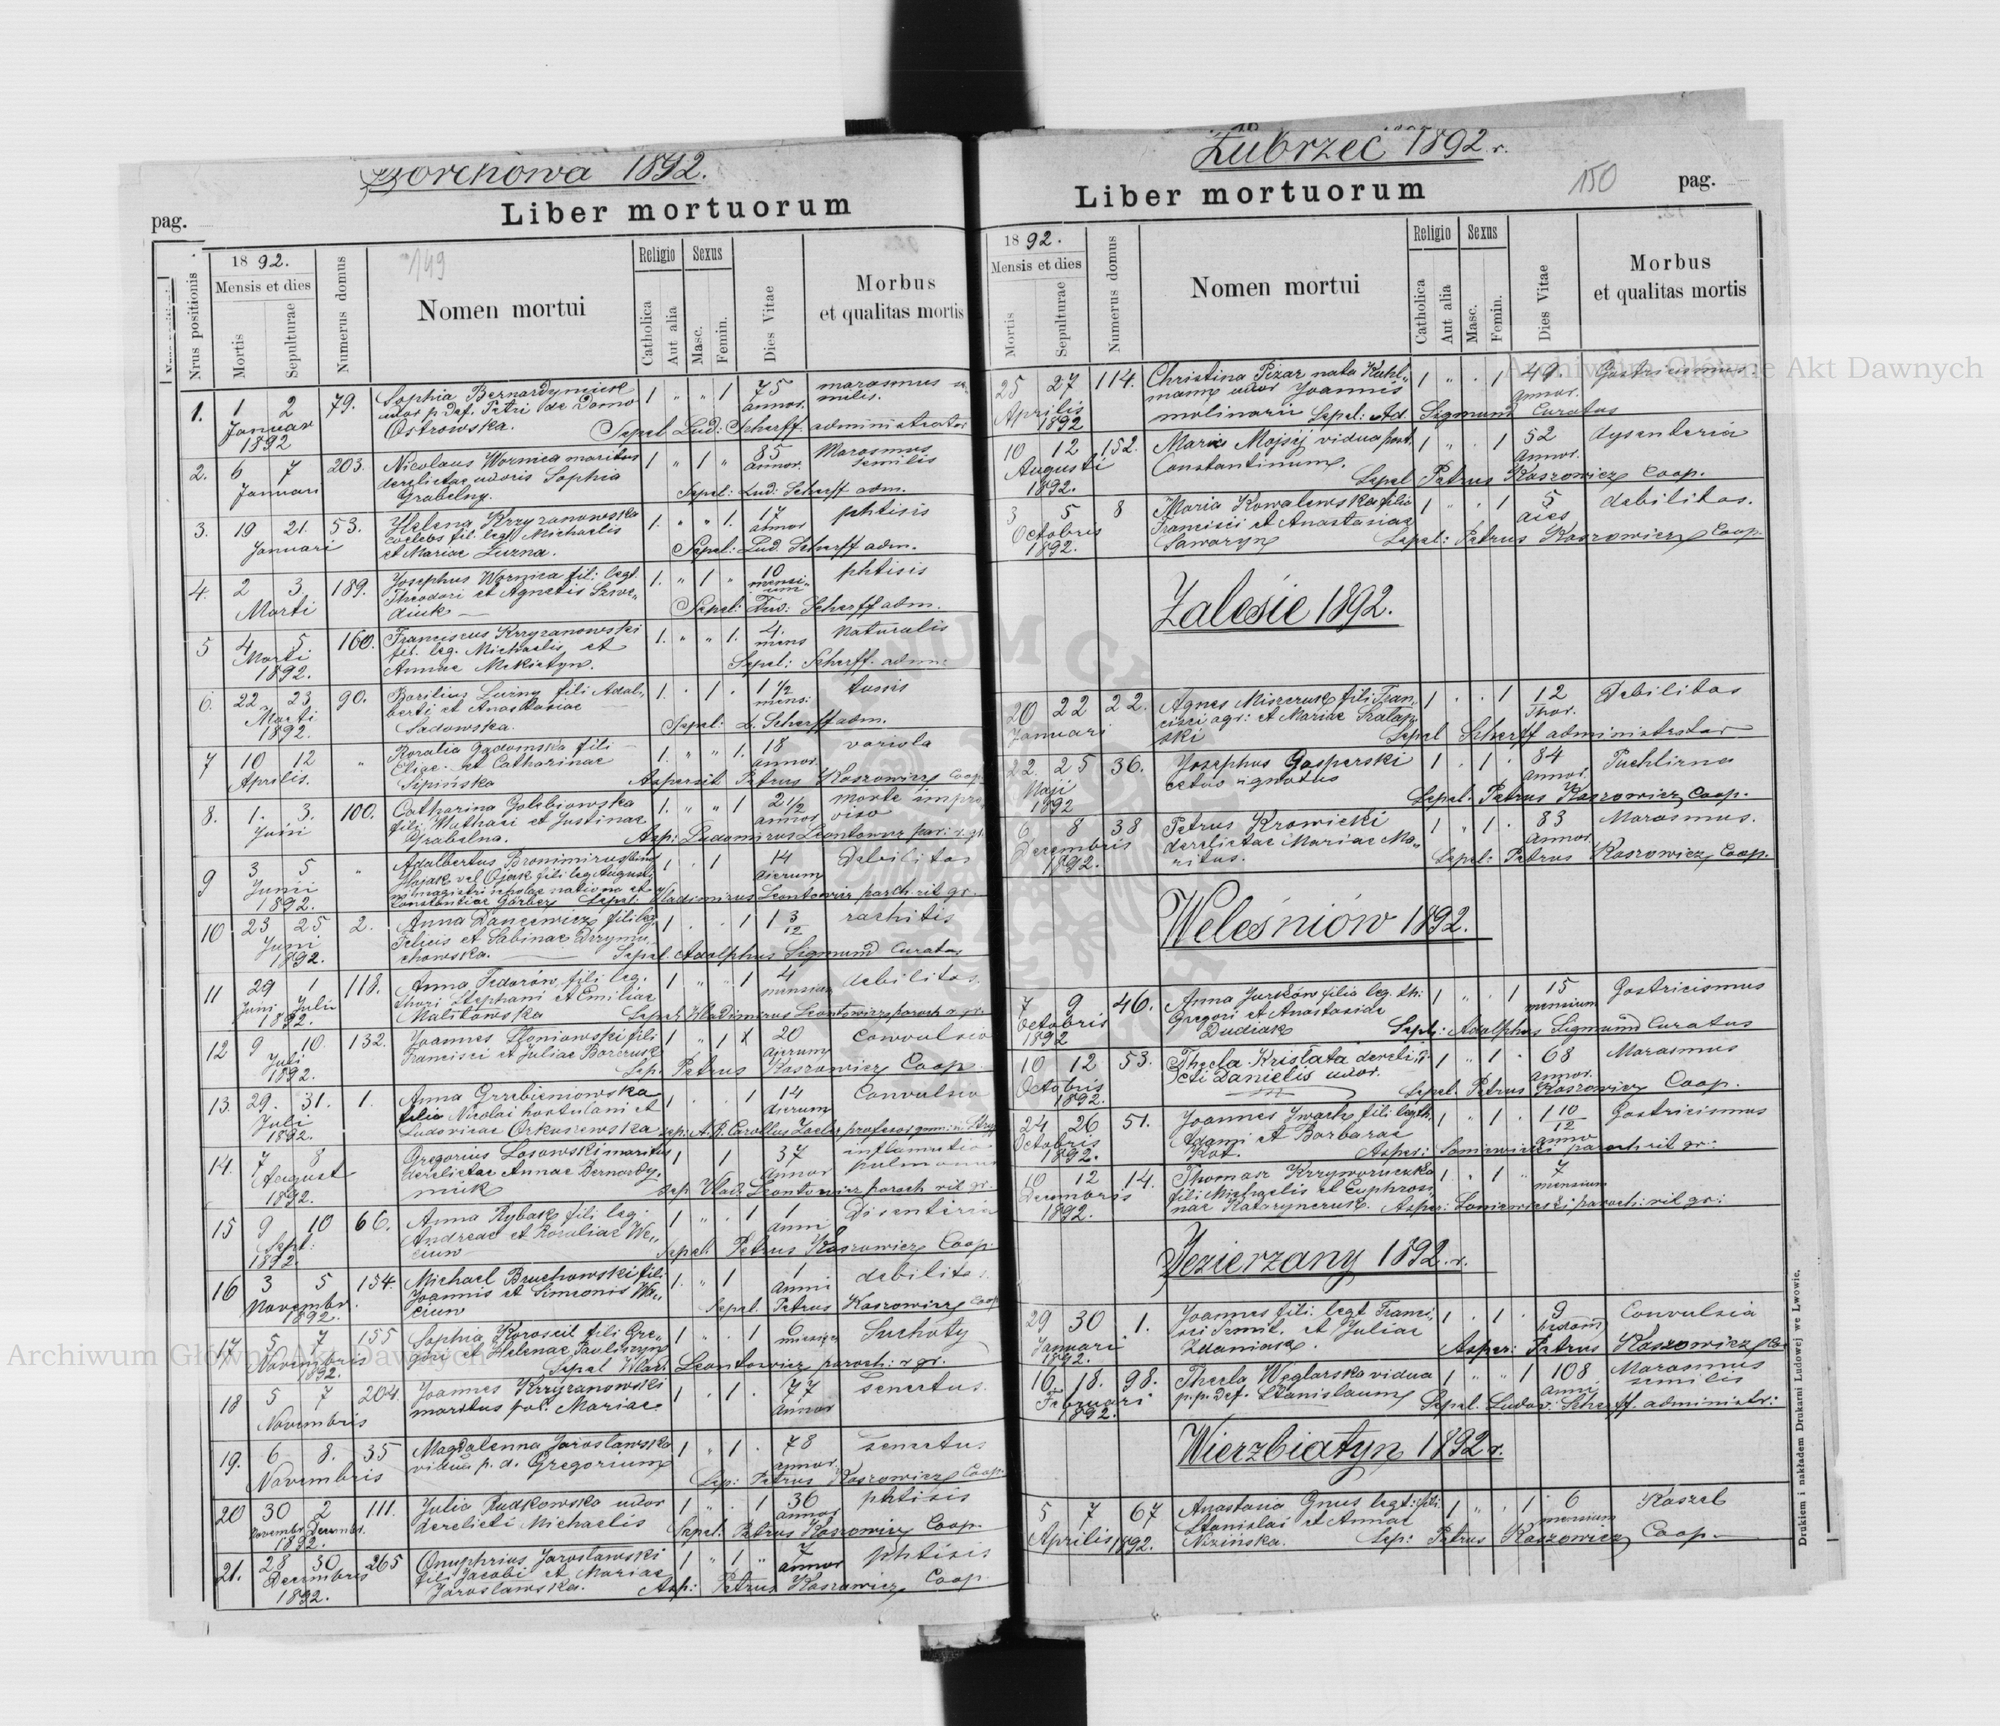 Borchowa 1892.
pag.
Liber mortuorum
149
Nrus positionis
18 92.
Mensis et dies
Mortis
Sepulturae
Numerus domus
Nomen mortui
Religio
Catholica
Aut alia
Sexus
Masc.
Femin.
Dies Vitae
Morbus
et qualitas mortis
1. 1 2 79. Sophia Bernardyniuk 1 " " 1 75 marasmus
Januar uxor p. def. Petri de Domo annor. senilis.
1892 Ostrowska. Sepel. Lud: Scherff administrator
2. 6 7 203. Nicolaus Wornica maritus 1 " 1 " 85 Marasmus
Januari derelictae uxoris Sophia annor. senilis
Grabelny. Sepel: Lud: Scherff adm.
3. 19 21. 53. Helena Krzyzanowska 1. " " 1. 17 phtisis
Januari coelebs fil. leg. Michaelis annor
et Mariae Luzna. Sepel: Lud. Scherff adm.
4. 2 3. 189. Josephus Wornica fili: legt. 1. " 1 " 10 phtisis
Marti Theodori et Agnetis Szwe- mensium
diuk Sepel: Lud: Scherff adm.
5 4 5 160. Franciscus Krzyzanowski 1. " " 1. 4. naturalis
Marti fil. leg. Michaelis et mens
1892. Annae Mikietyn. Sepel: Scherff. adm:
6. 22 23 90. Basilius Luzny fili Adal- 1. . 1 . 1 1/2 tussis
Marti berti et Anastasiae mens:
1892. Sadowska. Sepel: L. Scherff adm.
7 10 12 " Rosalia Gadomska fili 1. " " 1. 18 variola
Aprilis. Eliae et Catharinae annor.
Sipińska Aspersit Petrus Koszowicz Coop.
8. 1. 3. 100. Catharina Golebiowska 1. " " 1 2 1/2 morte impro-
Juni fili Mathaei et Justinae annor viso
Grabelna. Asp: Ladomirus Leontowicz par: r. gr.
9 3 5 " Adalbertus Bronimirus 1 . 1 14 Debilitas
Junii Hajak vel Ojak fili leg. Augusti dierum
1892. magistri scholae nativ na et
Constantiae Garbez Sepel: Vladimirus Leontowicz paroch. rit. gr.
10 23 25 2. Anna Dancewicz fili leg. 1 . . 1 1 3/12 rachitis
Juni Felicis et Sabinae Drzymu-
1892. chowska. Sepel. Adolphus Sigmund Curatus
11 29 1 118. Anna Fedorów fili leg. 1 " " 1 4 debilitas.
Juni Julii thori Stephani et Emiliae mensium
1892. Malitowska Sepel: Wladimirus Leontowicz paroch r. gr.
12 9 10. 132. Joannes Słoniowski fili 1 " 1 20 Convulsio
Juli Francisci et Juliae Borczuk dierum
1892. Sep. Petrus Koszowicz Coop.
13. 29. 31. 1. Anna Grzebieniowska 1 . . 1 14 Convulsio
Juli filia Nicolai hortulani et dierum
1892. Ludovicae Orkuszewska sep: A. R. Carollus
14. 7 8 Gregorius Lasowski maritus 1 1 37 inflamatio
August derelictae Annae Bernardy- annor pulmonum
1892. niuk sep Vlad: Leontowicz paroch rit. gr.
15 9 10 66. Anna Rybak fili leg: 1 " . 1 1 Disenteria
Sept: Andreae et Rosaliae We- anni
1892. ciuw Sepel: Petrus Koszowicz Coop.
16 3 5 154. Michael Bruchowski fili 1. " 1 1 debilita:
Novembr. Joannis et Simeonis We- anni
1892. ciuw Sepel. Petrus Koszowicz Coop
17 5 7 155 Sophia Koroscil fili Gre- 1 " . 1 6 Suchoty
Novembris gori et Helenae Pauliszyn
1892. Sepel. Wlad. Leontowicz paroch: r gr.
18 5 7 204. Joannes Krzyzanowski 1 . 1 . 77 Senectus.
Novembris maritus pol. Mariae. annor
19. 6 8. 35 Magdalenna Jaroslawska 1 " 1 . 78 Senectus
Novembris vidua p. d. Gregorium annor.
Sep: Petrus Koszowicz Coop.
20 30 2 111. Julia Rudkowska uxor 1 " . 1 36 phtisis
Novembr. Decembr. derelicti Michaelis annor
1892. Sepel: Petrus Koszowicz Coop.
21. 28 30 265 Onuphrius Jaroslawski 1 " 1 " 7 phtisis
Decembris fili Jacobi et Mariae annor
1892. Jaroslawska. Asp: Petrus Koszowicz Coop
Zubrzec 1892 r.
Liber mortuorum
150
pag.
18 92.
Mensis et dies
Mortis
Sepulturae
Numerus domus
Nomen mortui
Religio
Catholica
Aut alia
Sexus
Masc.
Femin.
Dies Vitae
Morbus
et qualitas mortis
25 27 114. Christina Pizar nata Kuhl- 1 " . 1 49 Gastricismus
Aprilis mann uxor Joannis annor.
1892 molinarii Sepel: Ad. Sigmund Curatus
10 12 152. Maria Mojsij vidua post. 1 " . 1 52 dysenteria
Augusti Constantinum. annor.
1892. Sepel Petrus Koszowicz Coop.
3 5 8 Maria Kowalewska filia 1 " . 1 5 debilitas.
Octobris Francisci et Anastasiae dies
1892. Sawaryn Sepel: Petrus Koszowicz Coop.
Zalesie 1892.
20 22 22. Agnes Miszczuk fili: Fran- 1 . . 1 12 Debilitas
Januari cisci agr: et Mariae Szalap-
ski Sepel Scherff administrator
22. 25 36. Josephus Gasperski 1 . 1 . 84 Puchlirna
Maji cetus ignotus annor.
1892 Sepel. Petrus Koszowicz Coop.
6 8 38 Petrus Krowicki 1 " 1 . 83 Marasmus.
Decembris derelictae Mariae Ma- annor.
1892. ritus. Sepel: Petrus Koszowicz Coop.
Weleśniów 1892.
7 9 46. Anna Jurków filia leg. th: 1 " . 1 15 Gastricismus
Octobris Gregori et Anastasiae mensium
1892 Dudiak Sepl: Adolphus Sigmund Curatus
10 12 53. Thecla Kristata dereli- 1 " 1 . 68 Marasmus
Octobris cti Danielis uxor. annor.
1892. Sepel. Petrus Koszowicz Coop.
24 26 51. Joannes Iwach fili legth. 1 " 1 . 1 10/12 Gastricismus
Octobris Adami et Barbarae anno
1892. Kot. Asper: Soniewicki paroch rit gr:
10 12 14. Thomasz Krzyworuczka 1 " 1 " 7
Decembris fili Michaelis et Euphrosi- mensium
1892. nae Kataryneruk. Asper: Soniewicki paroch: rit gr:
Jezierzany 1892. r.
29 30 1. Joannes fili: legt Franci- 1 . 1 . 9 Convulsia
Januari sci Szmit. et Juliae
1892. Zdaniosk. Asper: Petrus Koszowicz
16 18. 98. Thecla Węglarska vidua 1 " . 1 108 Marasmus
Februari p. p. def. Stanislaum anni senilis
1892. Sepel. Ludov: Scherff. administr:
Wierzbiatyn 1892 r.
5 7 67 Anastasia Gnus legt: fili: 1 " . 1 6 Kaszel
Aprilis 1892. Stanislai et Annae mensium
Nizińska. Sep: Petrus Koszowicz Coop.
Drukiem i nakładem Drukarni Ludowej we Lwowie.
Archiwum Główne Akt Dawnych
Archiwum Główne Akt Dawnych